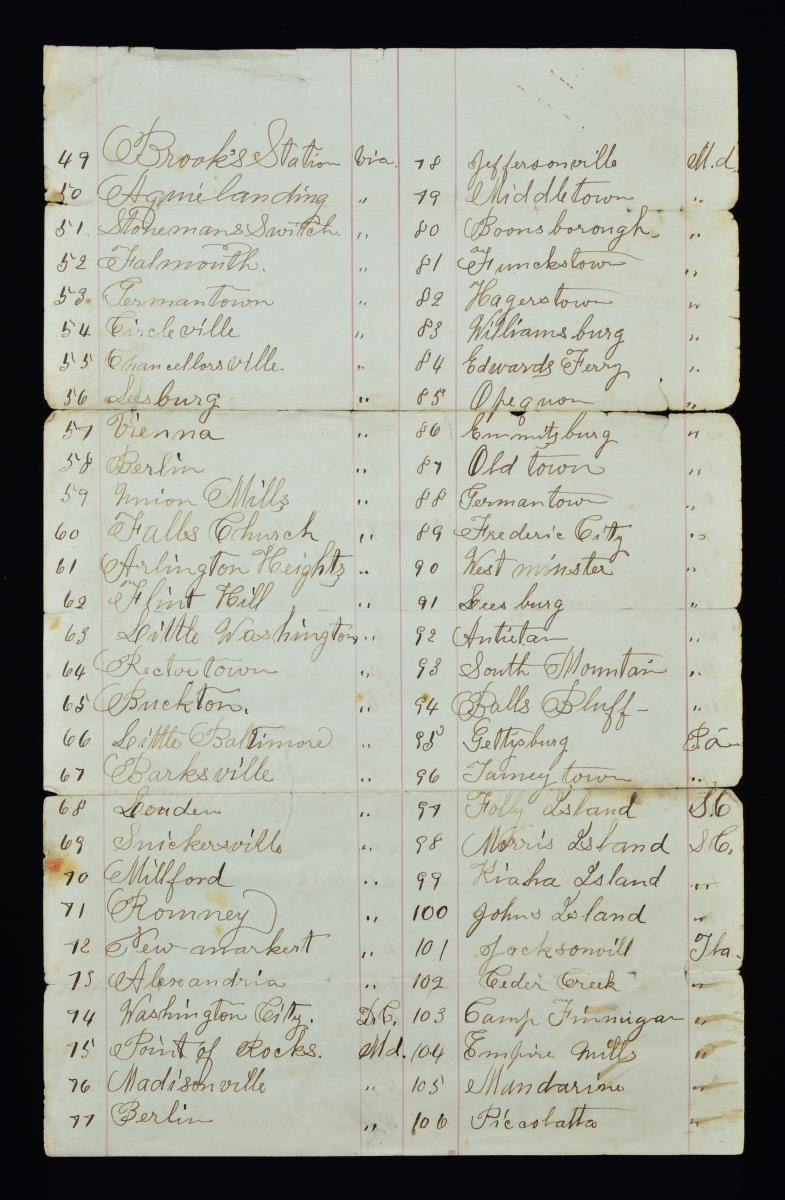 49 Brook's Station Via.
50 Aquielanding "
51 Stonemans Switch "
52 Falmouth. "
53 Germantown "
54 Circleville "
55 Chancellorsville. "
56 Leesburg "
57 Vienna "
58 Berlin "
59 Union Mills "
60 Falls Church "
61 Arlington Heights "
62 Flint Hill "
63 Little Washington "
64 Rectortown "
65 Buckton. "
66 Little Baltimore "
67 Barksville "
68 Louden "
69 Snickersville "
70 Millford "
71 Romney "
72 New markert "
73 Alexandria "
74 Washington City. D.C.
75 Point of Rocks. Md.
76 Madisonville "
77 Berlin "
78 Jeffersonville M.d.
79 Middletown "
80 Boonsborough. "
81 Funckstown "
82 Hagerstown "
83 Williamsburg "
84 Edwards Ferry "
85 Opequon "
86 Emmitzburg "
87 Old town "
88 Germantown "
89 Frederic City "
90 Westminster "
91 Leesburg "
92 Antietan "
93 South Mountain "
94 Balls Bluff - "
95 Gettysburg Pa
96 Taneytown "
97 Folly Island S.C
98 Morris Island S.C.
99 Kiaha Island "
100 Johns Island "
101 Jacksonvill Fla.
102 Ceder Creek "
103 Camp Finnugar "
104 Empire Mills "
105 Mandarine "
106 Piccolatta "